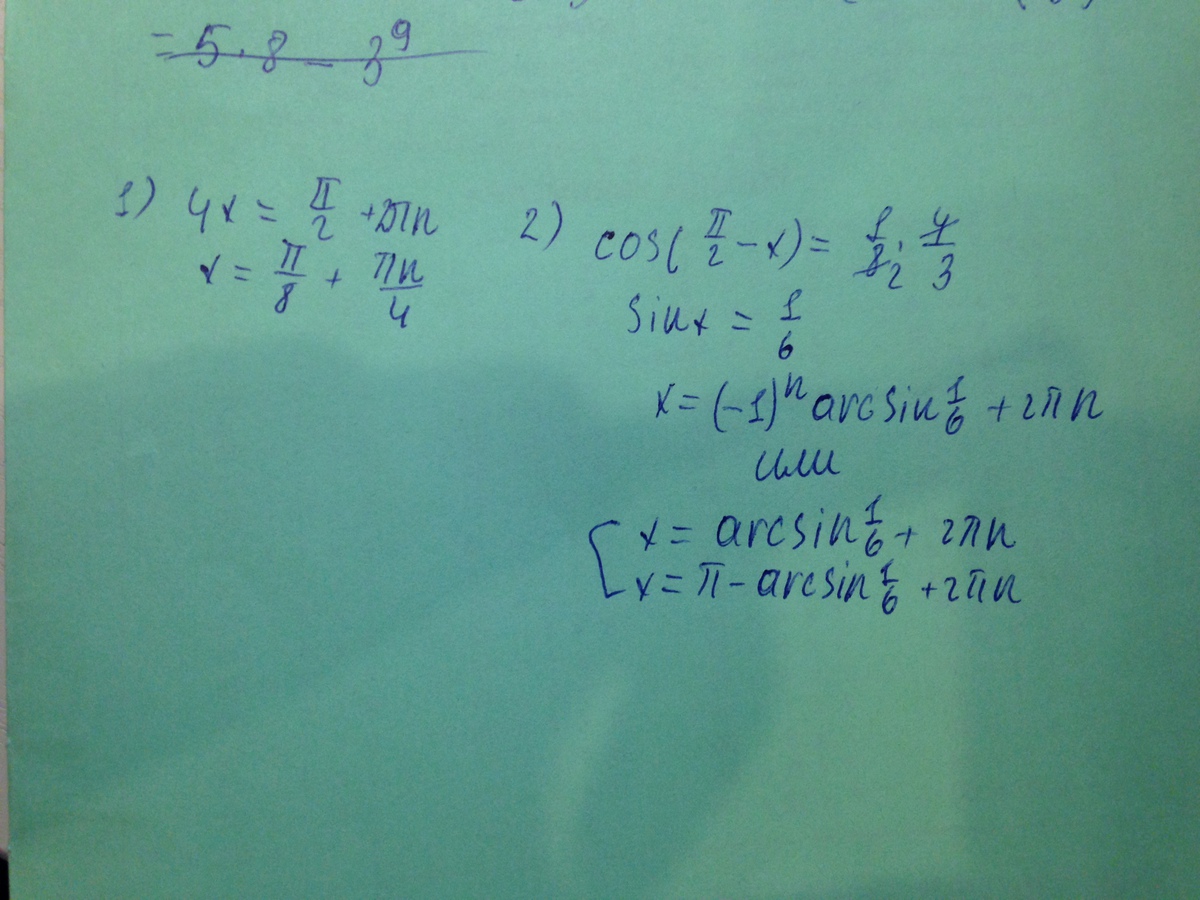 = 5 · 8 - 3⁹
1) 4x = π/2 + 2πn
x = π/8 + πn/4
2) cos(π/2 - x) = 1/8 2 · 4/3
sin x = 1/6
x = (-1)ⁿ arcsin 1/6 + 2πn
или
[ x = arcsin 1/6 + 2πn
x = π - arcsin 1/6 + 2πn